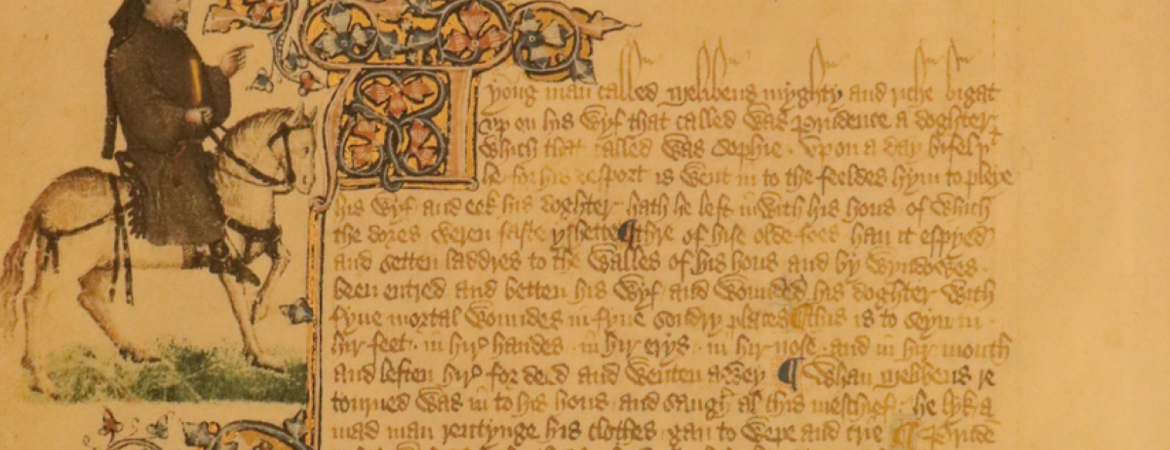 A yong man called Melibeus myghty and riche bigat
vp on his wyf that called was Prudence a doghter
which that called was Sophie. Vpon a day bifel þt
he for his desport is went in to the feeldes hym to pleye
his wyf and eek his doghter hath he left inwith his hous of which
the dores weren faste yshette ¶ thre of hise olde foes han it espyed
and setten laddres to the walles of his hous and by wyndowes
been entred and betten his wyf and wounded his doghter with
fyue mortal woundes in fyue sondry places ¶ this is to seyn in
hir feet. in hir handes. in hir erys. in hir nose. and in hir mouth
and leften hir for deed and wenten awey ¶ Whan Melibeus re
tourned was in to his hous and saugh al this meschief. he lyk a
mad man rentynge his clothes gan to wepe and crie ¶ Prude